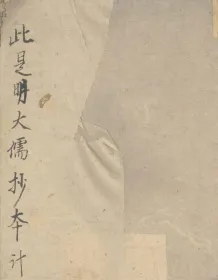 此是明大儒抄本计